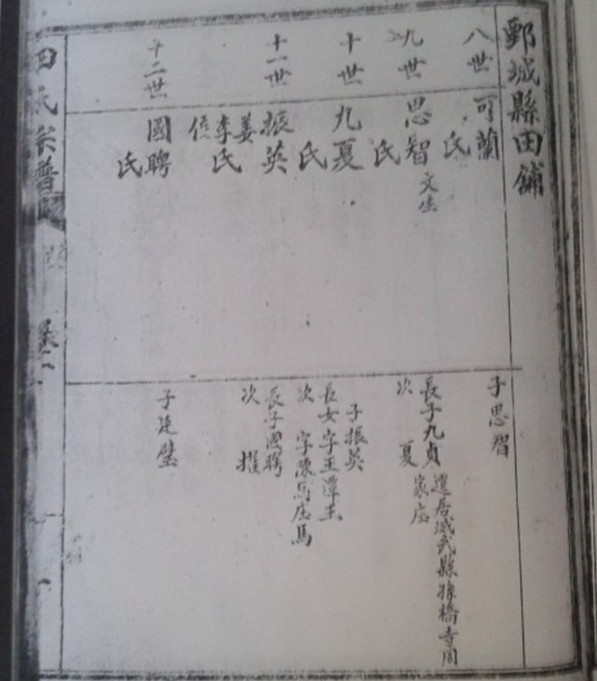 鄄城縣田鋪
八世
可蘭
氏
子思智
九世
思智 文生
氏
長子九貞 遷居城武縣孫橋寺周家庄
次 夏
十世
九夏
氏
子振英
長女字王潭王
次 字陳馬庄馬
十一世
振英
姜氏
李
侯
長子國聘
次 推
十二世
國聘
氏
子廷璧
田氏宗譜